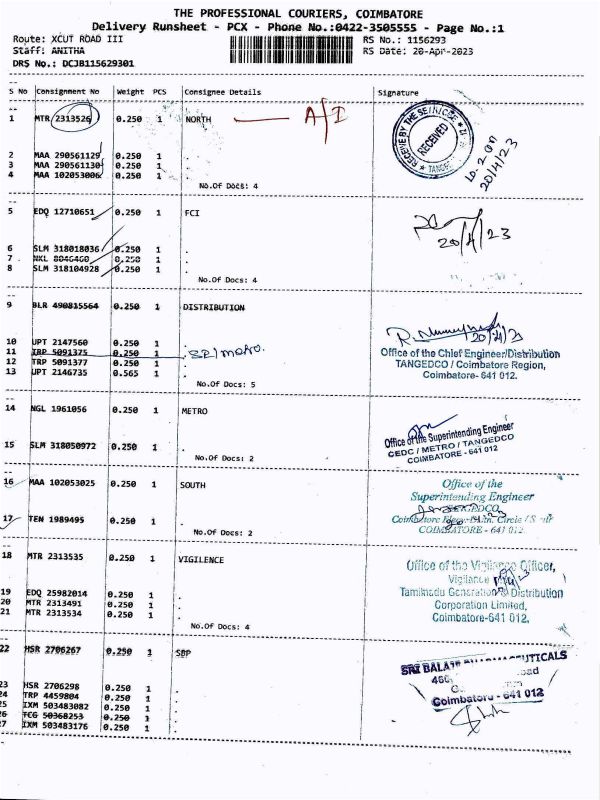 THE PROFESSIONAL COURIERS, COIMBATORE
Delivery Runsheet - PCX - Phone No.:0422-3505555 - Page No.:1
Route: XCUT ROAD III RS No.: 1156293
Staff: ANITHA RS Date: 20-Apr-2023
DRS No.: DCJB115629301
S No Consignment No Weight PCS Consignee Details Signature
1 MTR 2313526 0.250 1 NORTH A/I
RECEIVED
2 MAA 290561129 0.250 1 .
3 MAA 290561130 0.250 1 .
4 MAA 102053006 0.250 1 .
20/4/23
No.Of Docs: 4
5 EDQ 12710651 0.250 1 FCI
20/4/23
6 SLM 318018036 0.250 1 .
7 NKL 8046460 0.250 1 .
8 SLM 318104928 0.250 1 .
No.Of Docs: 4
9 BLR 490815564 0.250 1 DISTRIBUTION
10 UPT 2147560 0.250 1 .
11 TRP 5091375 0.250 1 . SE/metro.
12 TRP 5091377 0.250 1 .
13 UPT 2146735 0.565 1 .
No.Of Docs: 5
20/4/23
Office of the Chief Engineer/Distribution
TANGEDCO / Coimbatore Region,
Coimbatore- 641 012.
14 NGL 1961056 0.250 1 METRO
15 SLM 318050972 0.250 1 .
No.Of Docs: 2
Office of the Superintending Engineer
CEDC / METRO / TANGEDCO
COIMBATORE - 641 012
16 MAA 102053025 0.250 1 SOUTH
17 TEN 1989495 0.250 1 .
No.Of Docs: 2
Office of the
Superintending Engineer
COIMBATORE - 641 012
18 MTR 2313535 0.250 1 VIGILENCE
19 EDQ 25982014 0.250 1 .
20 MTR 2313491 0.250 1 .
21 MTR 2313534 0.250 1 .
No.Of Docs: 4
Office of the Vigilance Officer,
Vigilance
Tamilnadu Generation & Distribution
Corporation Limited,
Coimbatore-641 012.
22 HSR 2706267 0.250 1 SBP
23 HSR 2706298 0.250 1 .
24 TRP 4459804 0.250 1 .
25 IXM 503483082 0.250 1 .
26 TCG 50368253 0.250 1 .
27 IXM 503483176 0.250 1 .
SRI BALAJI PHARMACEUTICALS
Coimbatore - 641 012